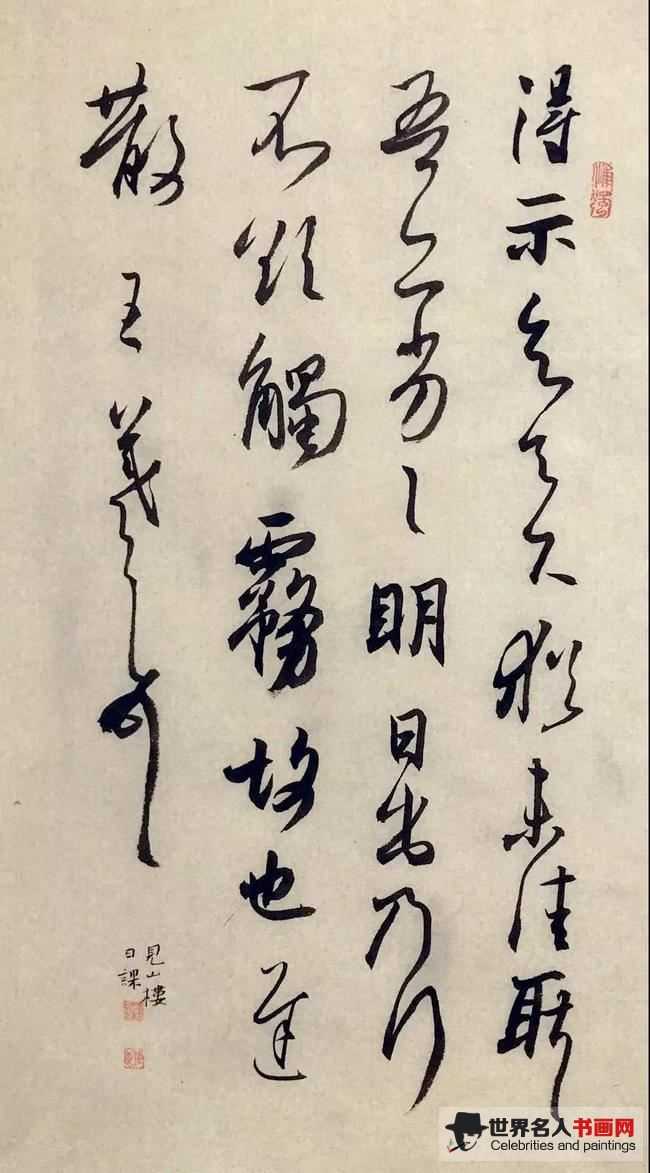 得示知足下猶未佳耿〻
吾亦劣〻明日出乃行
不欲觸霧故也遲
散王羲之頓首
見山樓
日課
世界名人书画网
Celebrities and paintings